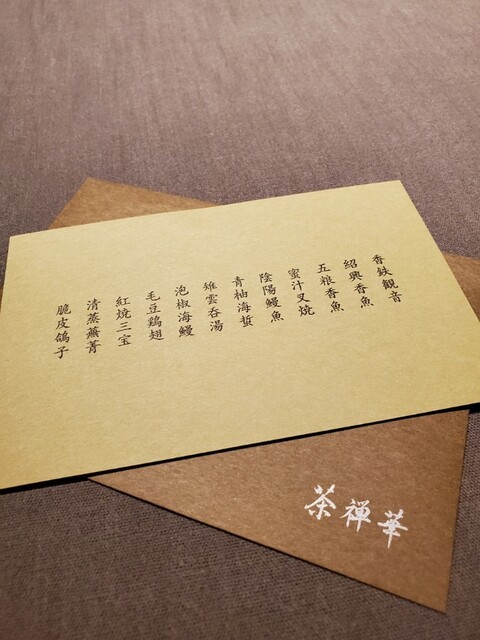 香鉄観音
紹興香魚
五粮香魚
蜜汁叉焼
陰陽鰻魚
青柚海蜇
雉雲呑湯
泡椒海鰻
毛豆鶏翅
紅焼三宝
清蒸蕪菁
脆皮鴿子
茶禅華